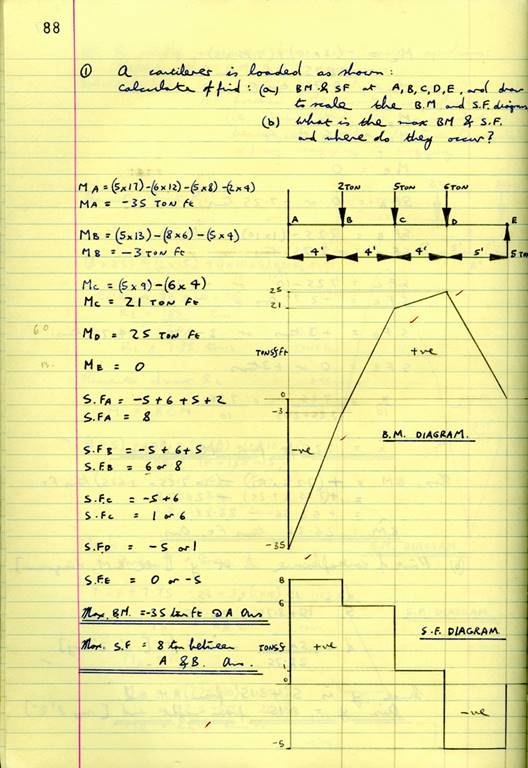 88
① A cantilever is loaded as shown:
Calculate & find: (a) BM & SF at A, B, C, D, E, and draw
to scale the B.M and S.F. diagram
(b) What is the max BM & S.F.
and where do they occur?
MA = (5x17)-(6x12)-(5x8)-(2x4)
MA = -35 TON ft
2TON 5TON 6TON
A B C D E
MB = (5x13)-(8x6)-(5x4)
MB = -3 TON ft
4' 4' 4' 5' 5 TON
MC = (5x9)-(6x4)
MC = 21 TON Ft
25
21
MD = 25 TON Ft
60
TONSFt +ve
ME = 0
0
-3
S.FA = -5+6+5+2
S.FA = 8
B.M. DIAGRAM.
S.FB = -5+6+5
S.FB = 6 or 8
-ve
S.FC = -5+6
S.FC = 1 or 6
S.FD = -5 or 1
-35
S.FE = 0 or -5
8
Max. B.M. = -35 ton ft @ A Ans
6
Max. S.F = 8 ton between
A & B. Ans.
TONSf +ve
S.F. DIAGRAM
1
0
-ve
-5